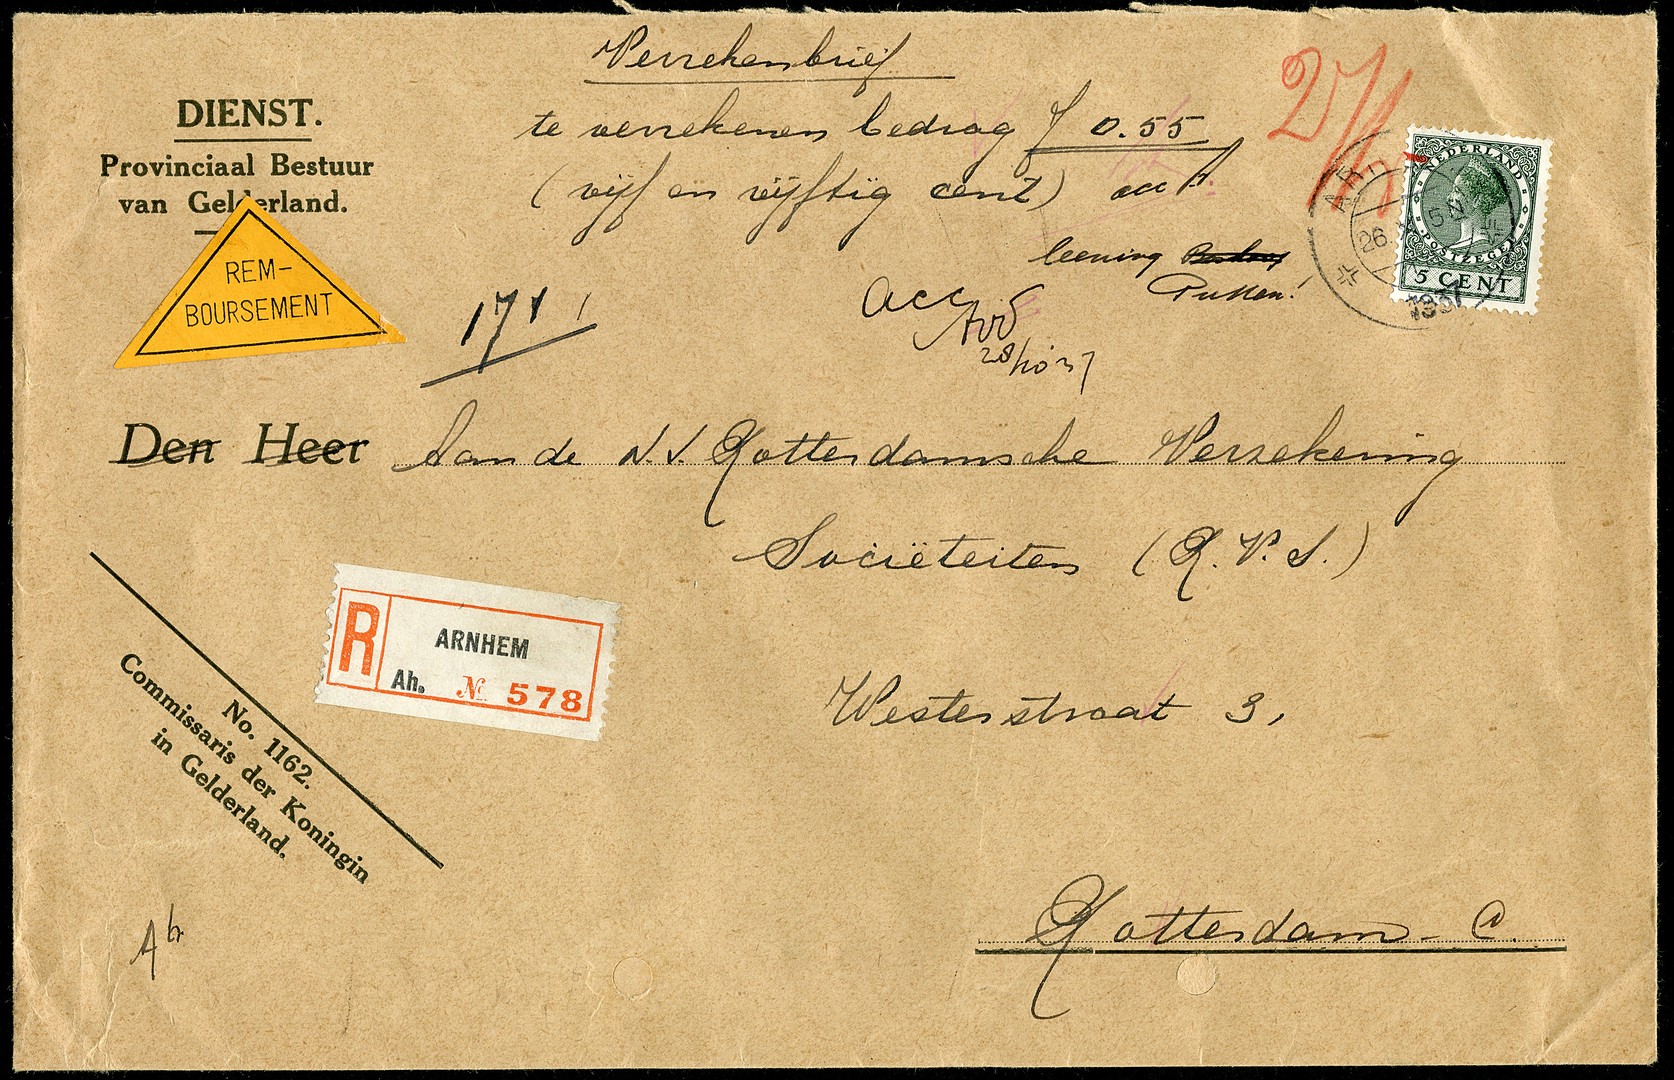 Verrekenbrief
te verrekenen bedrag f 0.55
(vijf en vijftig cent)
leening
Putten!
DIENST.
Provinciaal Bestuur
van Gelderland.
REM-
BOURSEMENT
1711
acc
28/10 37
NEDERLAND
POSTZEGEL
5 CENT
26
5 N
1937
Den Heer Aan de N.V. Rotterdamsche Verzekering
Sociëteiten (R.V.S.)
R
ARNHEM
Ah. № 578
Westerstraat 3,
No. 1162.
Commissaris der Koningin
in Gelderland.
Rotterdam-C.